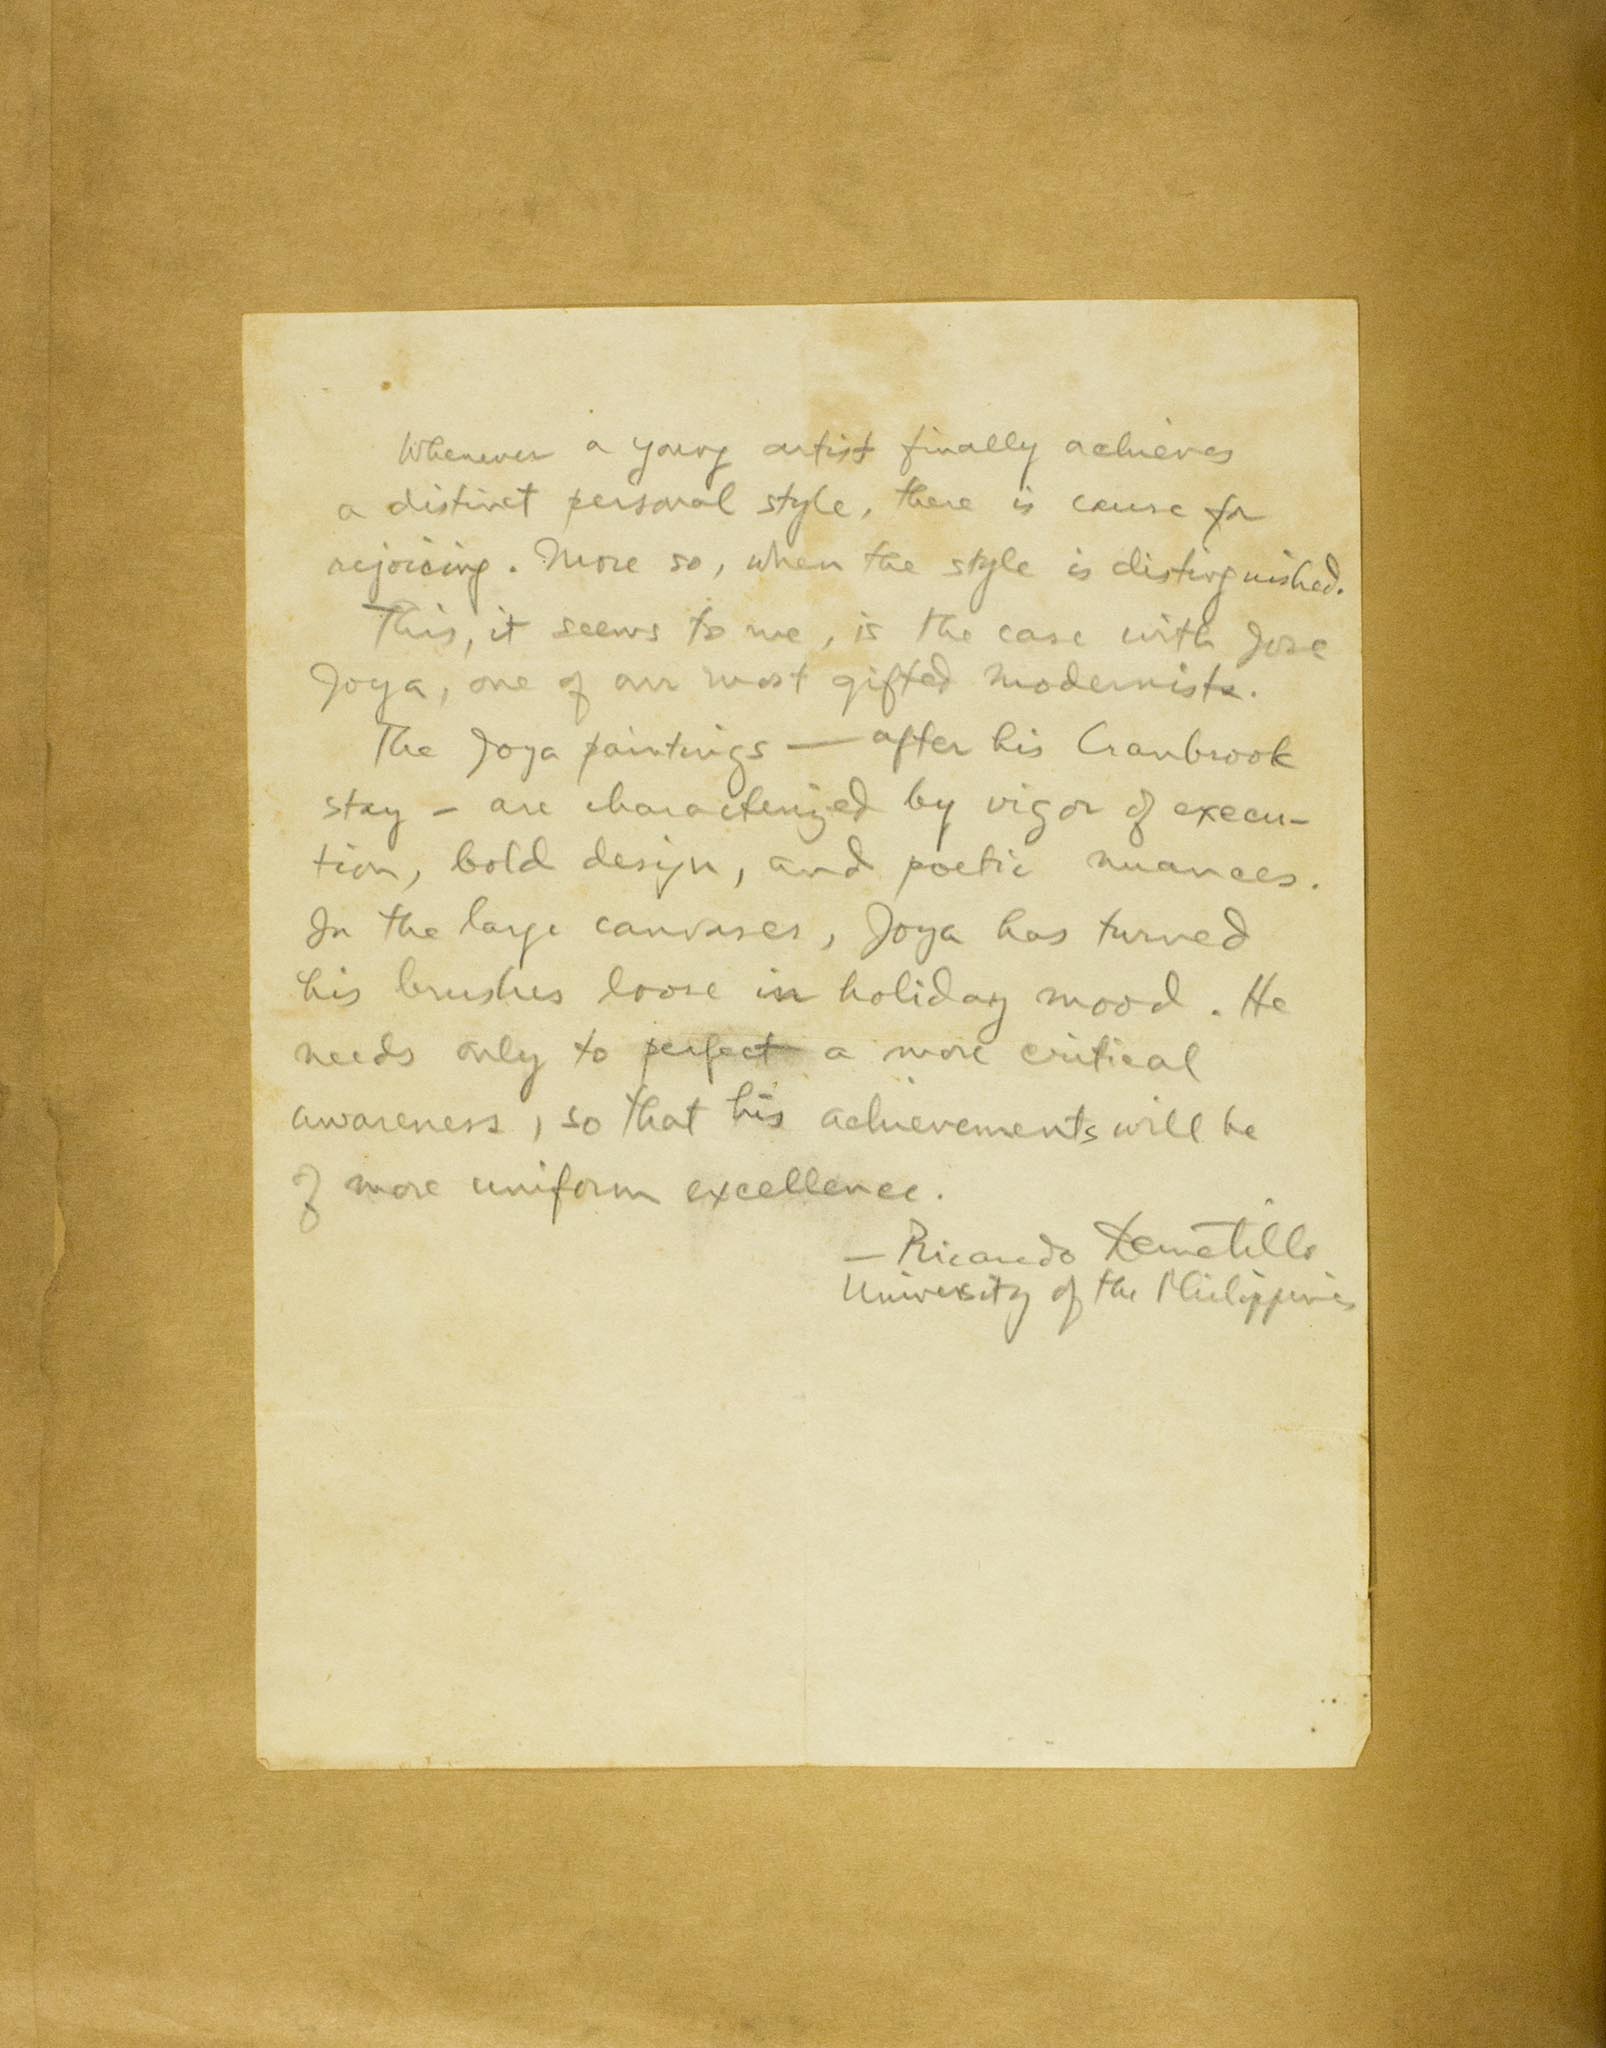 Whenever a young artist finally achieves
a distinct personal style, there is cause for
rejoicing. More so, when the style is distinguished.
This, it seems to me, is the case with Jose
Joya, one of our most gifted modernists.
The Joya paintings — after his Cranbrook
stay – are characterized by vigor of execu-
tion, bold design, and poetic nuances.
In the large canvases, Joya has turned
his brushes loose in holiday mood. He
needs only to perfect a more critical
awareness, so that his achievements will be
of more uniform excellence.
— Ricardo Demetillo
University of the Philippines